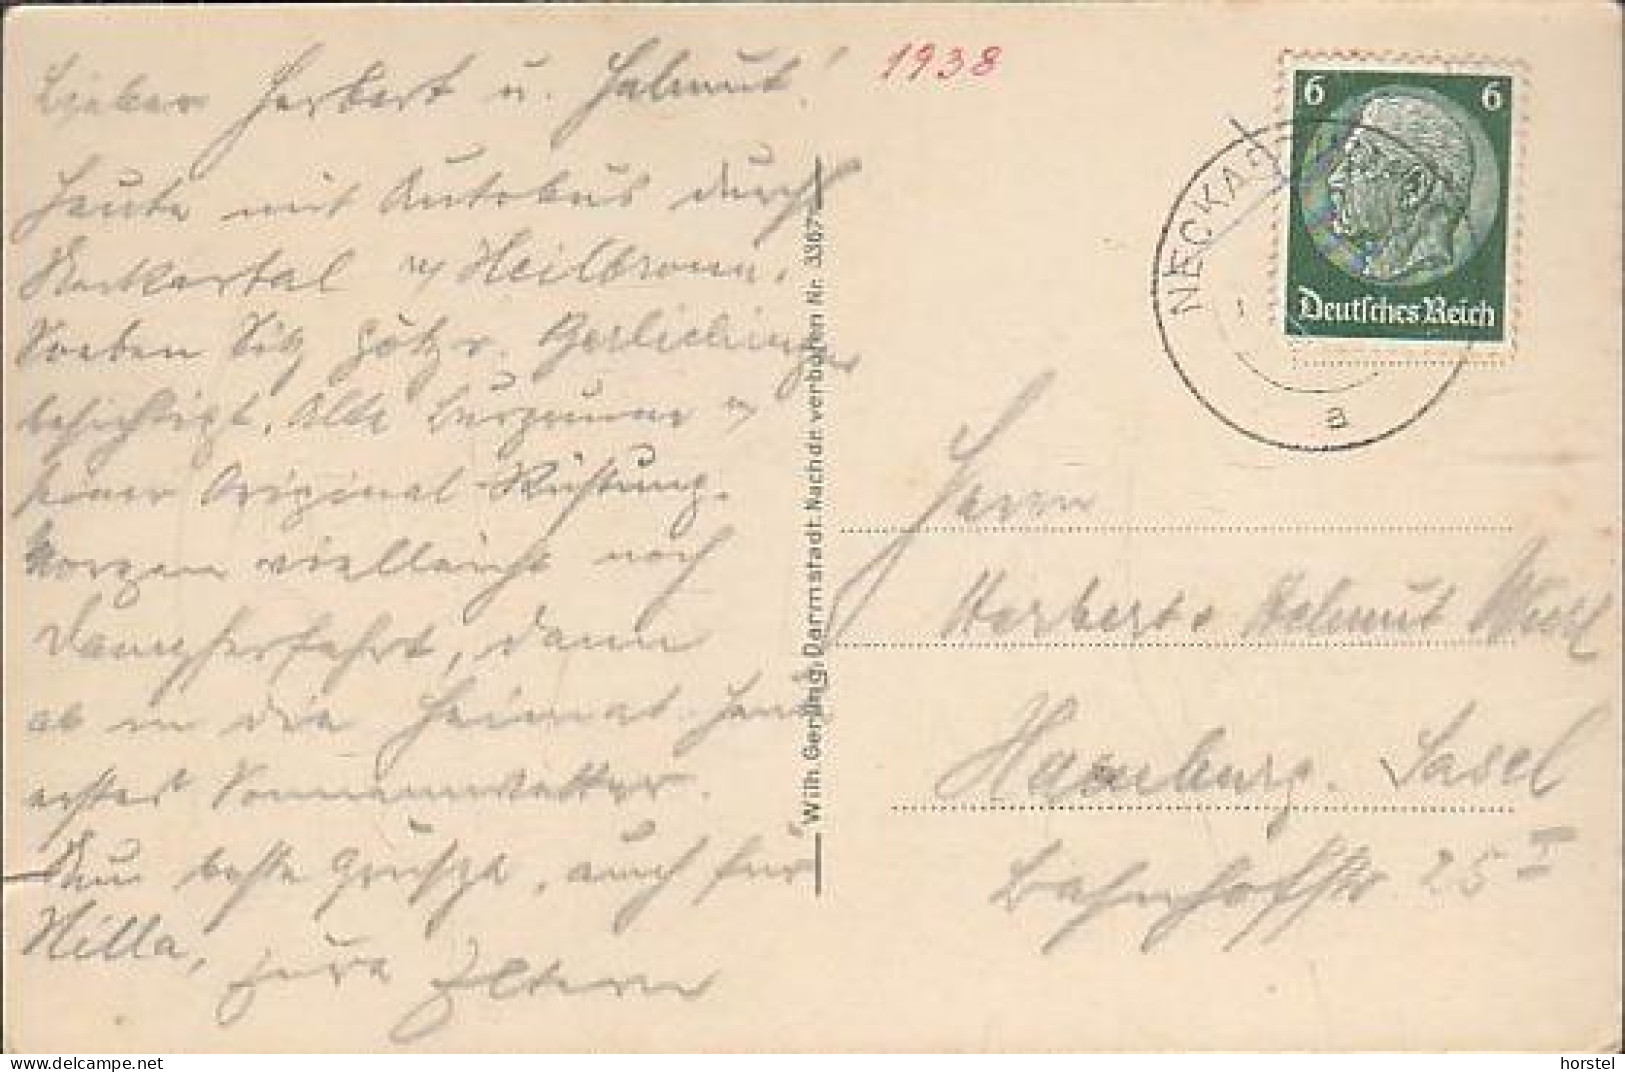 Lieber Herbert u. Helmut!
Heute mit Autobus durch
Neckartal n. Heilbronn.
Soeben Sitz Götz v. Berlichingen
besichtigt. Alte Burgruine m
seiner Original-Rüstung.
Morgen vielleicht noch
Dampferfahrt, dann
ab in die Heimat. Heute
erstes Sonnenwetter.
Nun beste Grüsze, auch für
Milla, Eure Eltern
Wilh. Gerling, Darmstadt. Nachdr. verboten Nr. 3367
1938
6 6
Deutsches Reich
NECKAR
a
Herrn
Herbert + Helmut
Hamburg. Sasel
Bahnhofstr. 25 I
horstel